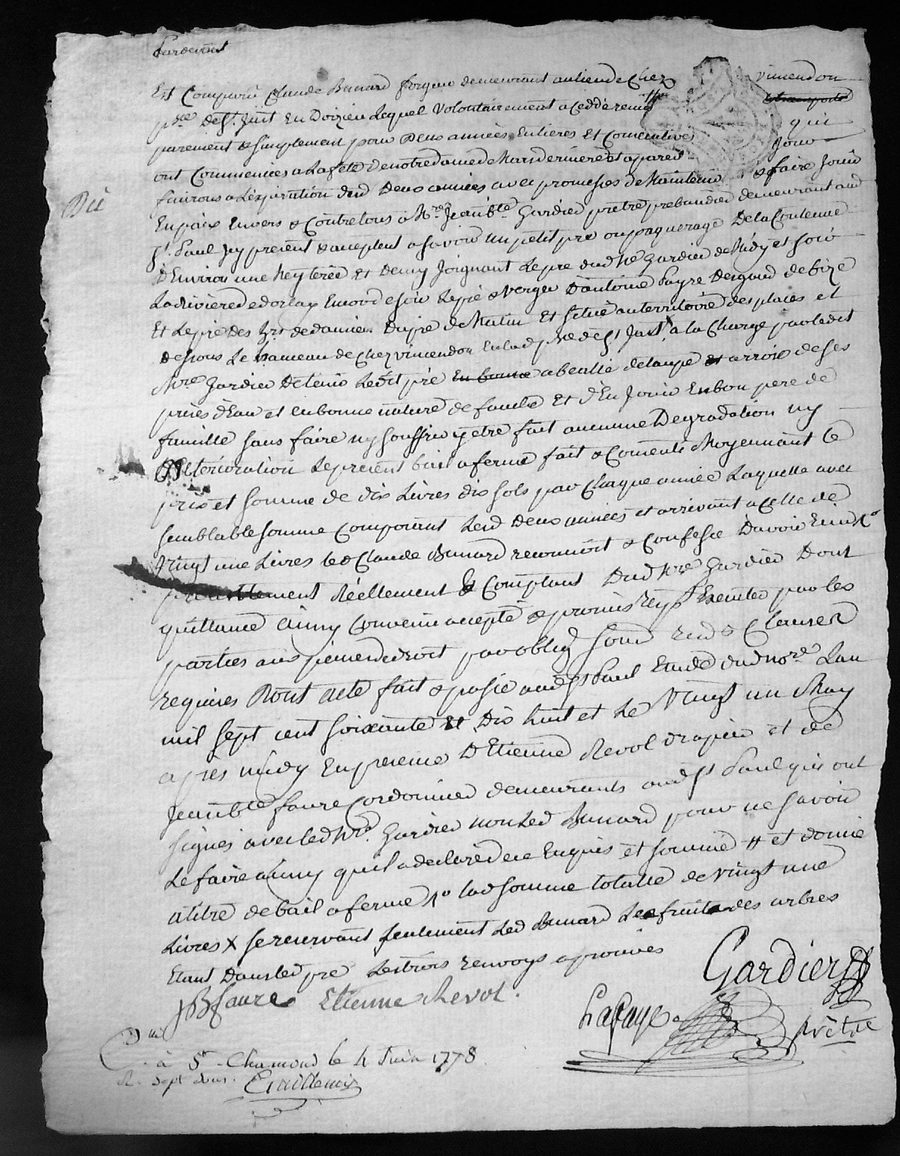 Pardevant
Est Comparu Claude Bunard forgeur demeurant au lieu de Chez vimendon
psse de St Just En Doizieu Lequel Volontairement a cedde remis
purement & simplement pour Deux années Entieres Et Consecutives qui
ont Commencés a La fete de notre dame de Mars derniere et a pareil jour
finirons a L'expiration desd Deux années avec promesses de Maintenir & faire Jouir
En paix Envers & Contre tous a Mre Jean bte Gardier pretre prebandier demeurant aud
St Paul Icy present & acceptant a savoir un petit pré ou paquerage De la Contenue
D'Environ une Meyterée Et Demy Joignant Le pré dud Mre Gardier de Midy et soir
La Riviere de dorlay
Et Le pré des de damien Dupré de Matin Et situé au territoire des places et
Dessous Le hameau de Chez vimendon En lad psse de St Just, a la Charge par ledit
Mre Gardier De tenir Ledit pré de ses
prises d'Eau et en bonne nature de fauche Et d'En Jouir En bon pere de
famille sans faire ny souffrir y etre fait aucune Degradation ny
Deterioration Le present bail a ferme fait & Consenti Moyennant le
prix et somme de dix Livres dix sols par Chaque année Laquelle avec
semblable somme Composant Lesd Deux années et arrivant a Celle de
vingt une Livres led Claude Bunard reconnoit & Confesse D'avoir Reçu
Réellement & Comptant Dud Mre Gardier Dont
quittance ainsy Convenu accepté & promis Executer par les
parties aux peines de droit par oblig Soum Ren & Clauses
requises Dont Acte fait & passé aud St Paul Etude dud nore L'an
mil sept cent soixante Et Dix huit et Le Vingt un May
apres midy En presence D'Etienne Revol drapier et de
Jean bte faure Cordonnier demeurants aud St Paul qui ont
signés avec led Mre Gardier non led Bunard pour ne savoir
Le faire ainsy qu'il a declaré de ce Enquis et sommé # et donné
a titre de bail a ferme po lad somme totalle de vingt une
Livres X se reservant seulement Led Bunard Les fruits des arbres
Etant Dans led pré Les trois renvoys aprouvés
Gardier
JB faure Etienne Revol.
Lafaye
prêtre
à St Chamond le 4 Juin 1778
R. sept sous.